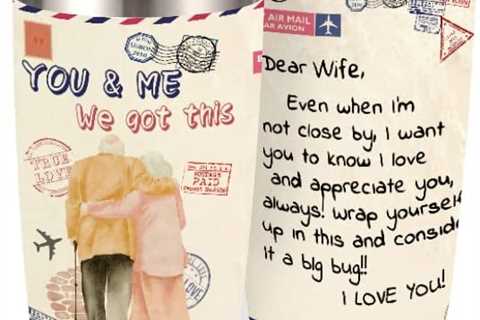 YOU & ME
We got this
TRUE
LOVE
POSTAGE
PAID
AIR MAIL
PAR AVION
Dear Wife,
Even when I'm
not close by, I want
you to know I love
and appreciate you,
always! wrap yourself
up in this and consider
it a big bug!!
I LOVE YOU!